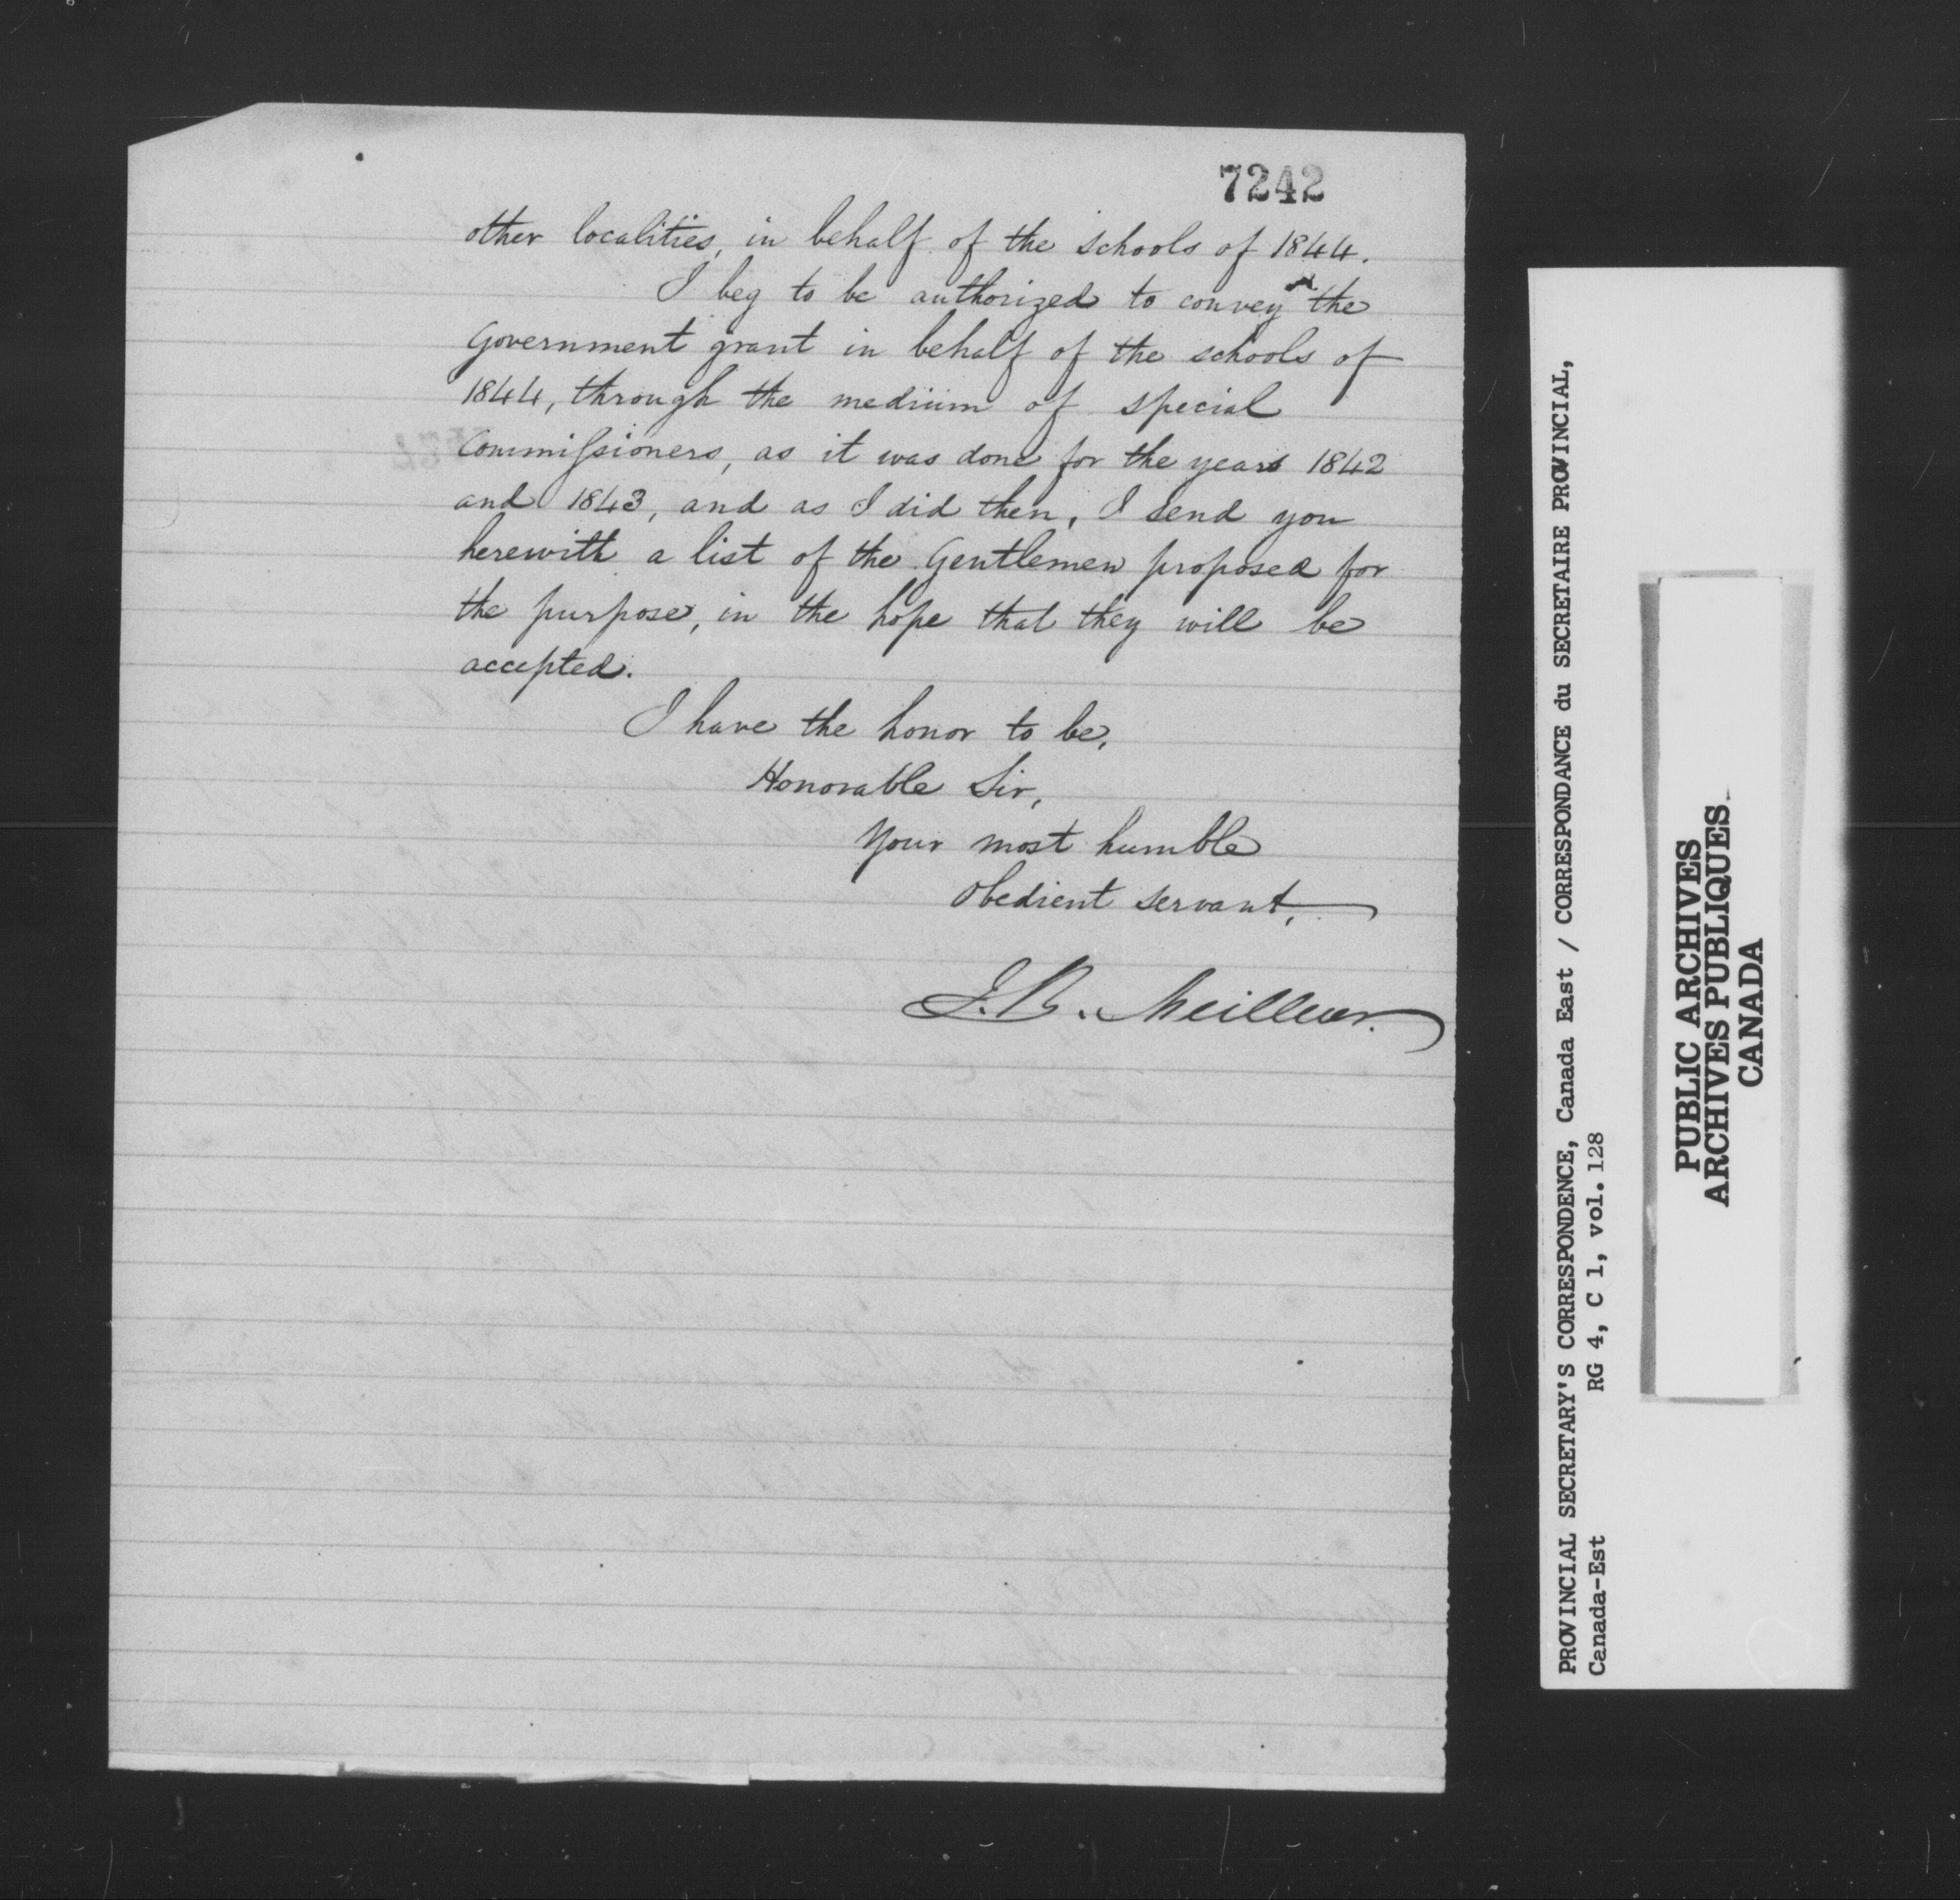 7242
other localities, in behalf of the schools of 1844.
I beg to be authorized to convey the
Government grant in behalf of the schools of
1844, through the medium of special
Commissioners, as it was done for the years 1842
and 1843, and as I did then, I send you
herewith a list of the Gentlemen proposed for
the purpose, in the hope that they will be
accepted.
I have the honor to be,
Honorable Sir,
Your most humble
Obedient servant,
J. B. Meilleur.
PROVINCIAL SECRETARY'S CORRESPONDENCE, Canada East / CORRESPONDANCE du SECRETAIRE PROVINCIAL,
Canada-Est RG 4, C 1, vol. 128
PUBLIC ARCHIVES
ARCHIVES PUBLIQUES
CANADA